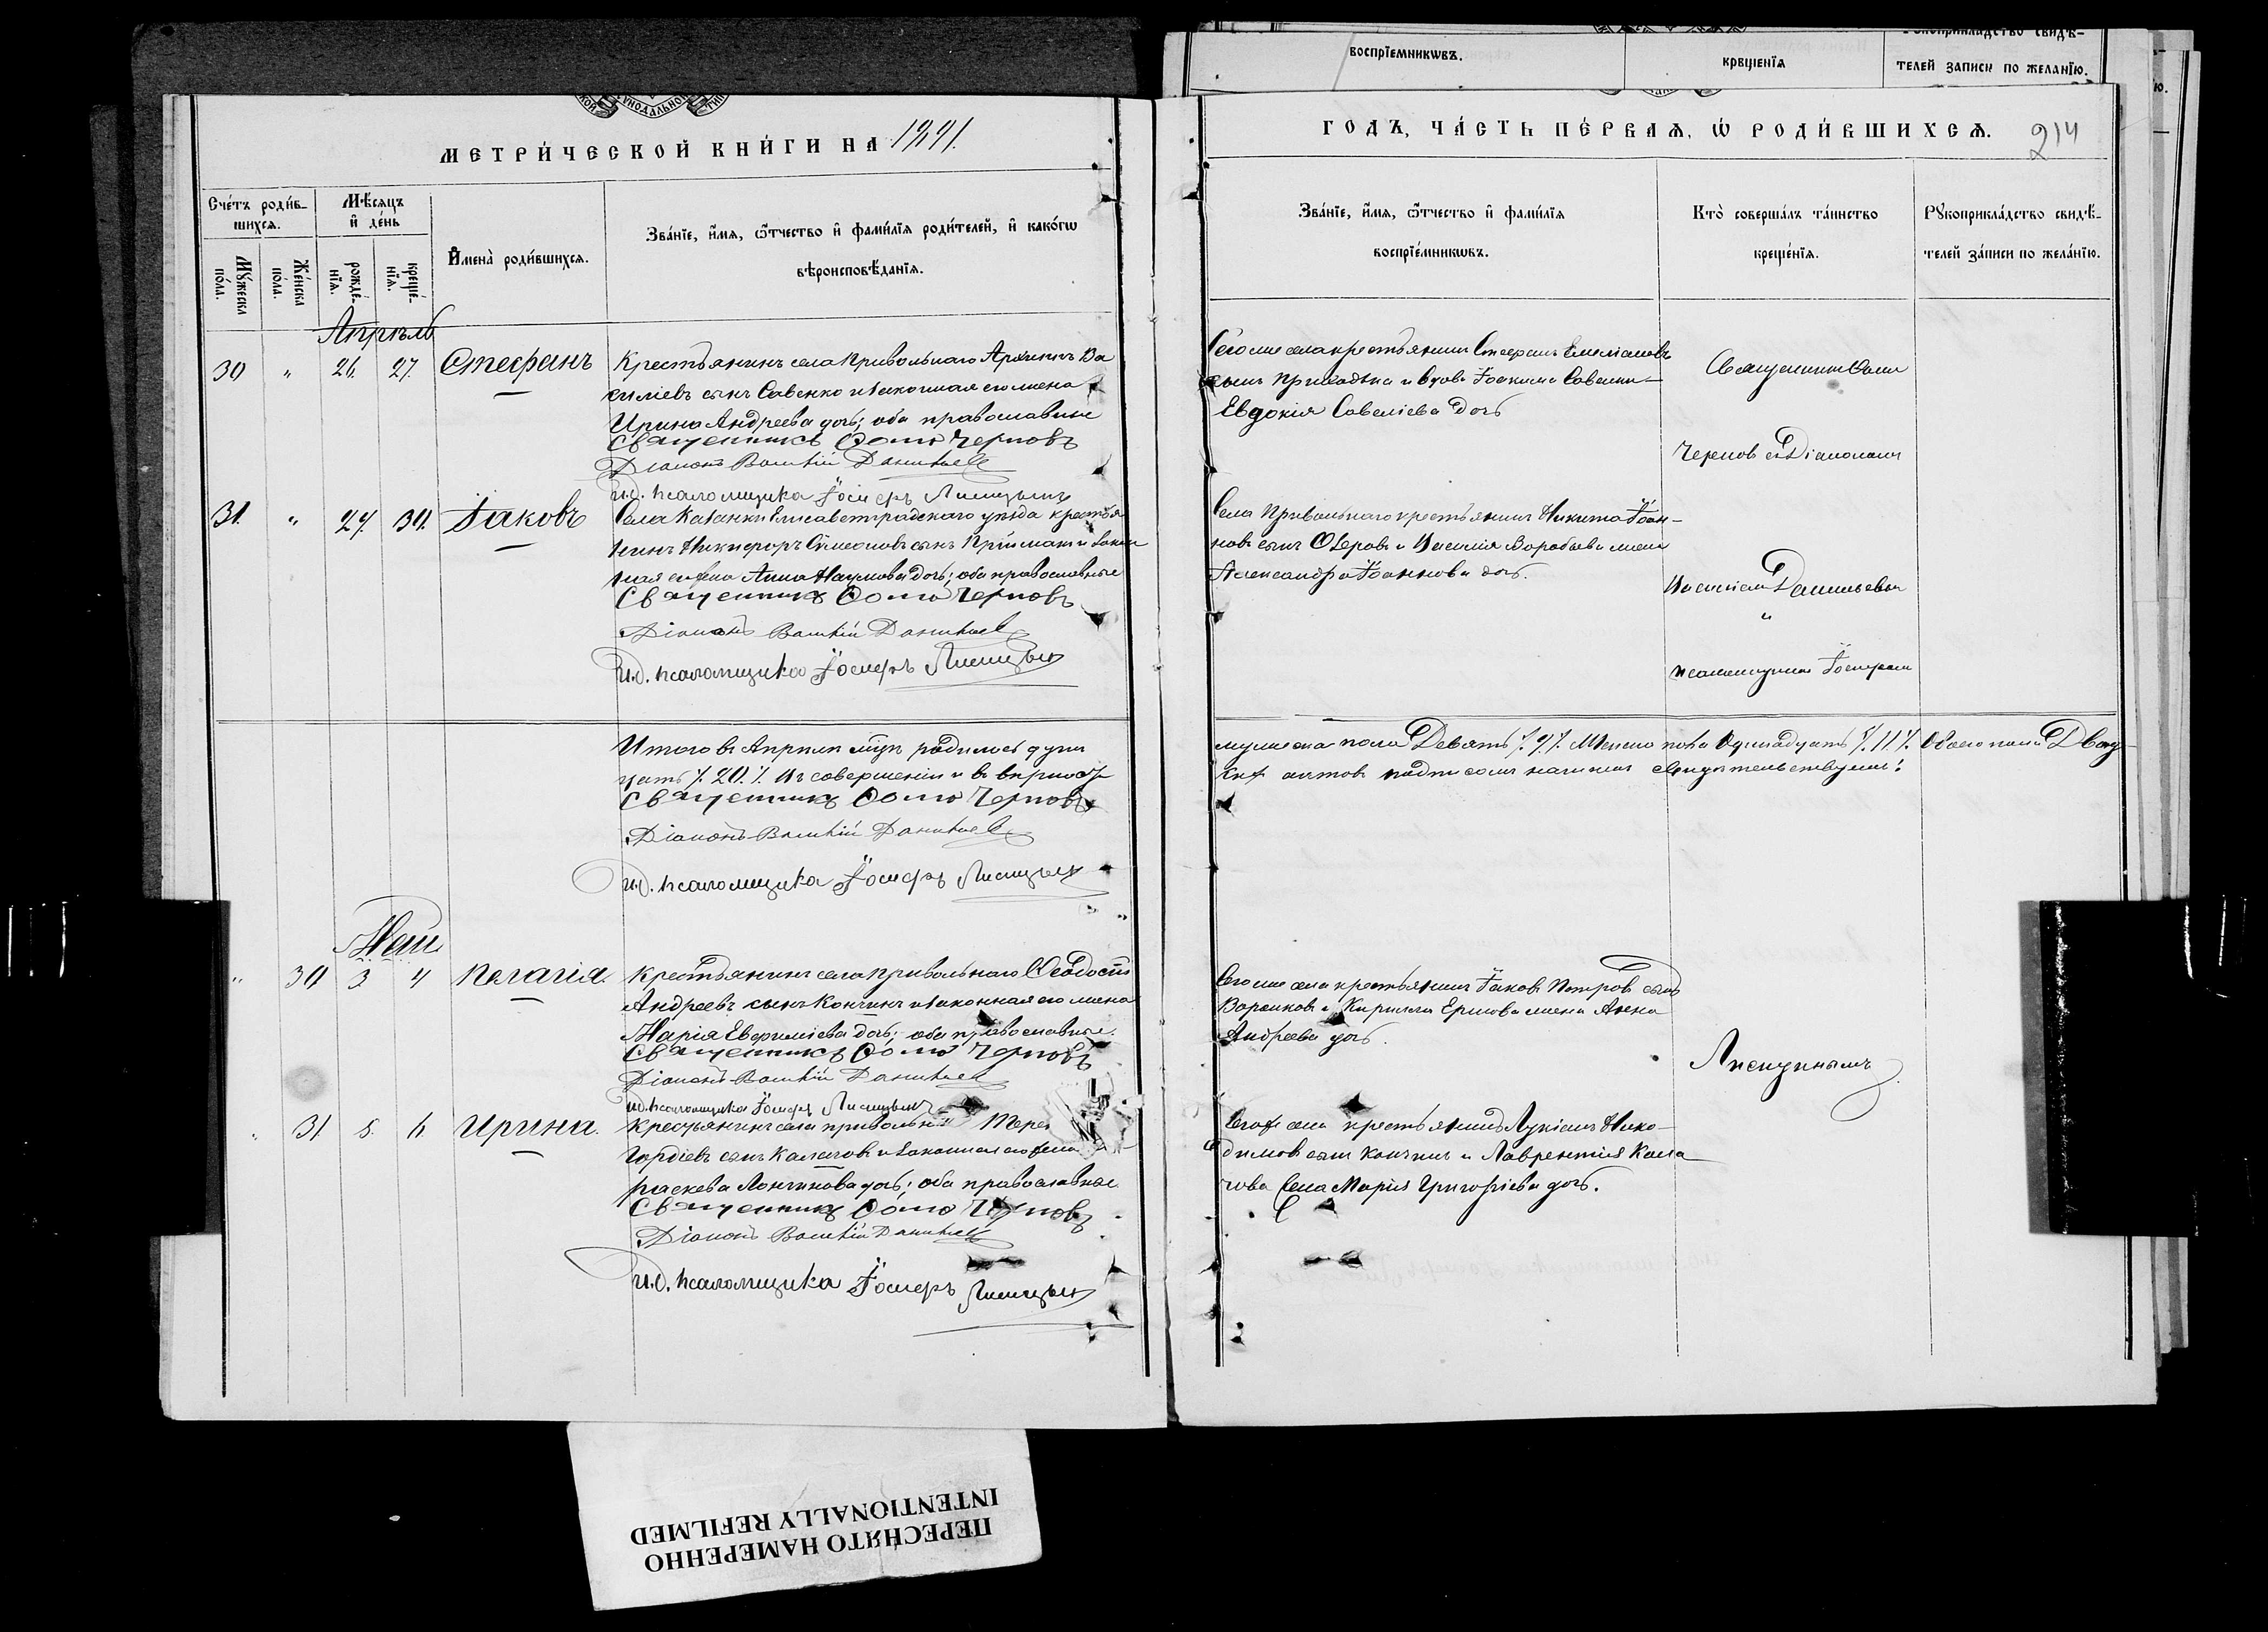 воспрїемникѡвъ.
крещенїѧ
телей записи по желанїю.
МЕТРИ́ЧЕСКОЙ КНИ́ГИ НА 1891.
ГОДЪ, ЧА́СТЬ ПЕ́РВАѦ, Ѡ҆ РОДИ́ВШИХСѦ. 214
Сче́тъ роди́вшихсѧ.
Мѣ́сѧцъ и҆ де́нь
Мꙋ́жеска по́ла.
Же́нска по́ла.
рожде́нїѧ.
креще́нїѧ.
И҆мена̀ роди́вшихсѧ.
Зва́нїе, и҆́мѧ, ѻ҆́тчество и҆ фами́лїѧ роди́телей, и҆ како́гѡ
вѣроисповѣ́данїѧ.
Зва́нїе, и҆́мѧ, ѻ҆́тчество и҆ фами́лїѧ
воспрїе́мникѡвъ.
Кто̀ соверша́лъ та́инство
креще́нїѧ.
Рꙋкоприкла́дство свидѣ́-
телей за́писи по жела́нїю.
Апрѣль
30 " 26. 27. Стефанъ
Крестьянинъ села Привольнаго Архипъ Ва
силіевъ сынъ Савенко и законная его жена
Ирина Андреева дочь; оба православные
Священникъ Ѳома Черновъ
Діаконъ Василій Даниловъ
И.д. псаломщика Іосифъ Лисицынъ
Сего же села крестьянинъ Стефанъ Емеліановъ
сынъ и вдова Іоакима Савенки
Евдокія Савеліева дочь
Священникомъ Ѳомою
Черновымъ съ Діакономъ
31. " 27. 30. Іаковъ
Села Казанки Елисаветградскаго уѣзда крестья
нинъ Никифоръ Симеоновъ сынъ Пріймакъ и закон
ная его жена Анна Наумова дочь; оба православные
Священникъ Ѳома Черновъ
Діаконъ Василій Даниловъ
И.д. псаломщика Іосифъ Лисицынъ
Села Привольнаго крестьянинъ Никита Іоан-
новъ сынъ Озеровъ и Василія Воробьева жена
Александра Іоаннова дочь.
Василіемъ
и
псаломщикомъ Іосифомъ
Итого въ Апрѣлѣ мцѣ родилось душъ
цать /. 20. /. Въ совершеніи и въ вѣрности
Священникъ Ѳома Черновъ
Діаконъ Василій Даниловъ
И.д. псаломщика Іосифъ Лисицынъ
мужеска пола Девять /. 9 /. Женска пола Одинадцать /. 11 /. Обоего пола Двад-
актовъ подписомъ нашимъ свидѣтельствуемъ:
Май
" 30 3 4 Пелагія.
Крестьянинъ села Привольнаго Ѳеодосій
Андреевъ сынъ Кончинъ и законная его жена
Марія Евфиміева дочь; оба православные.
Священникъ Ѳома Черновъ
Діаконъ Василій Даниловъ
И.д. псаломщика Іосифъ Лисицынъ
Сего же села крестьянинъ Іаковъ Петровъ сынъ
и Кирилла Ершова жена Анна
Андреева дочь.
Лисицинымъ
" 31 5. 6. Ирина.
Крестьянинъ села Привольн
Гордіевъ сынъ Калачовъ и законная его жена
раскева Лонгинова дочь; оба православные
Священникъ Ѳома Черновъ
Діаконъ Василій Даниловъ
И.д. псаломщика Іосифъ Лисицынъ
Сего же села крестьянинъ Лукіанъ Нико-
димовъ сынъ Кончинъ и Лаврентія Кала
чова жена Марія Григоріева дочь.
ПЕРЕСНЯТО НАМЕРЕННО
INTENTIONALLY REFILMED